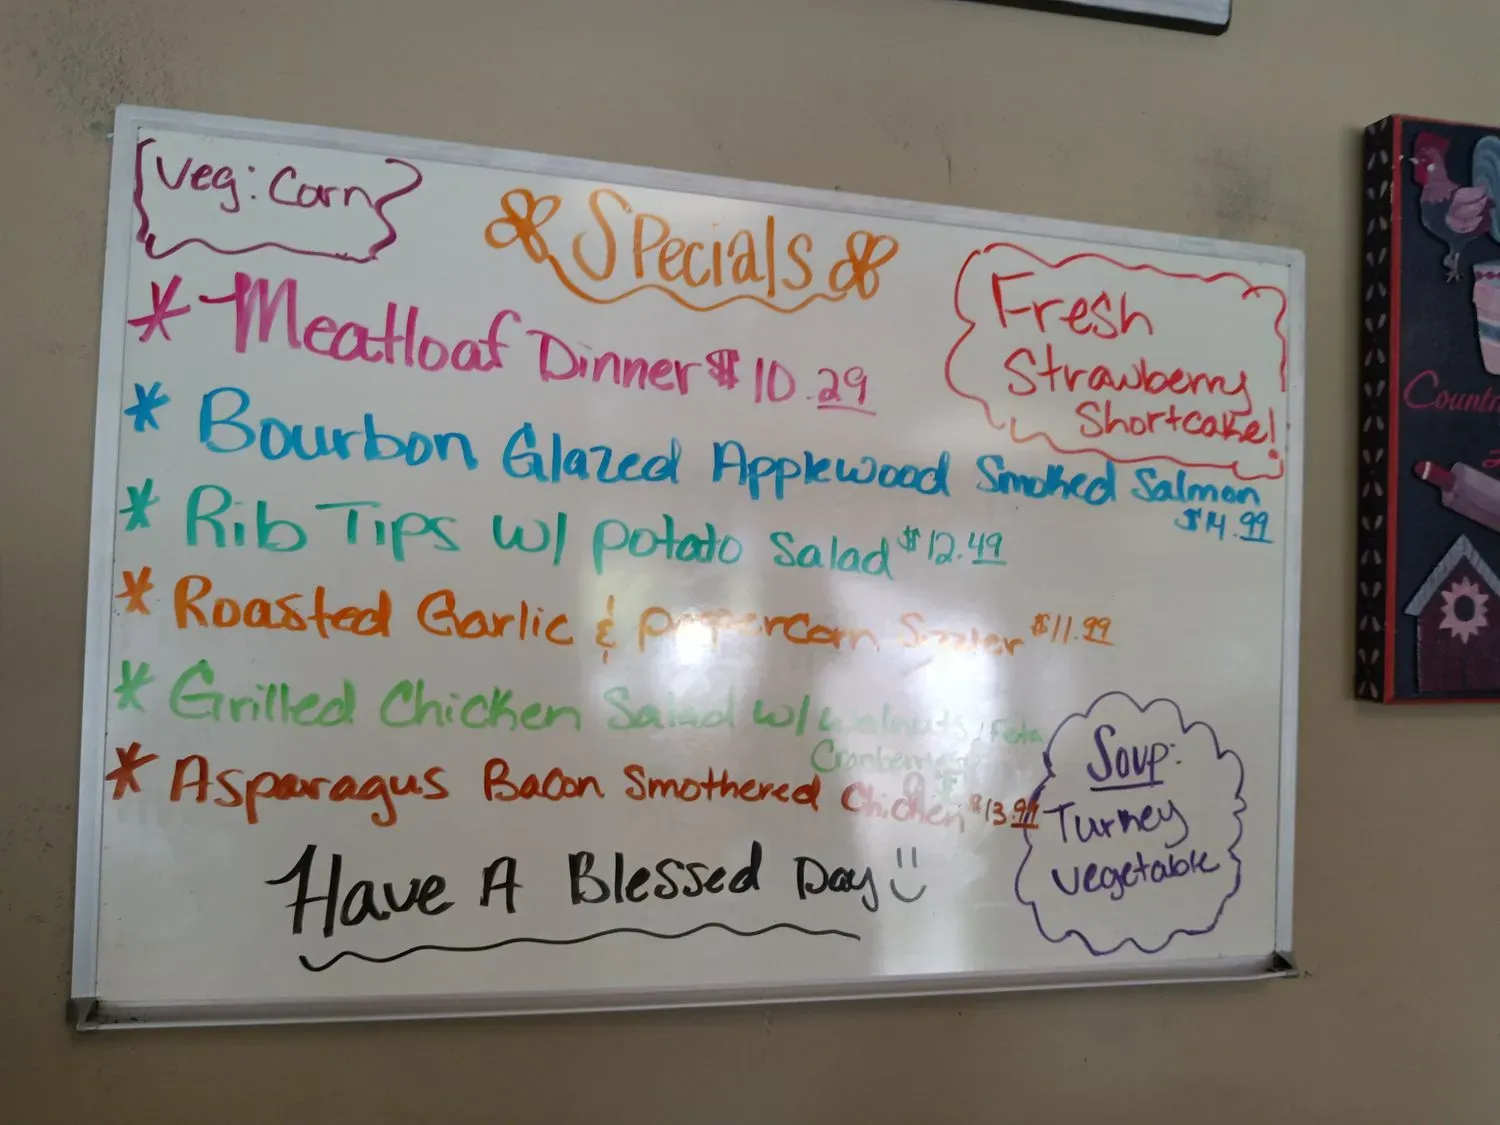 Veg: Corn
Specials
Fresh
Strawberry
Shortcake!
* Meatloaf Dinner $10.29
* Bourbon Glazed Applewood Smoked Salmon
$14.99
* Rib Tips w/ potato Salad $12.49
* Roasted Garlic & peppercorn Sizzler $11.99
* Grilled Chicken Salad w/ walnuts, Feta
* Asparagus Bacon Smothered Chicken $13.99
Have A Blessed Day
Soup:
Turkey
vegetable